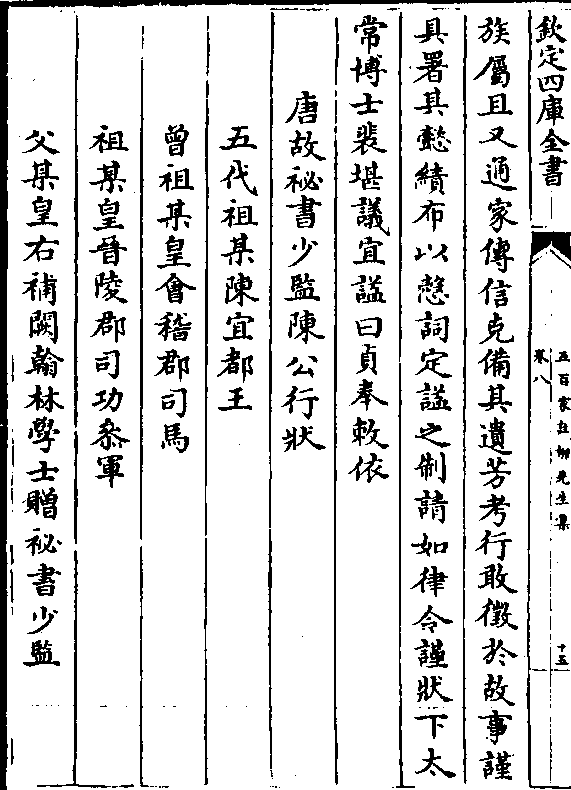 欽定四庫全書
五百家註柳先生集
卷八
十五
族屬且又通家傳信克備其遺芳考行敢徵於故事謹
具署其懿績布以慤詞定諡之制請如律令謹狀下太
常博士裴堪議宜諡曰貞奉敕依
唐故祕書少監陳公行狀
五代祖某陳宜都王
曾祖某皇會稽郡司馬
祖某皇晉陵郡司功叅軍
父某皇右補闕翰林學士贈祕書少監